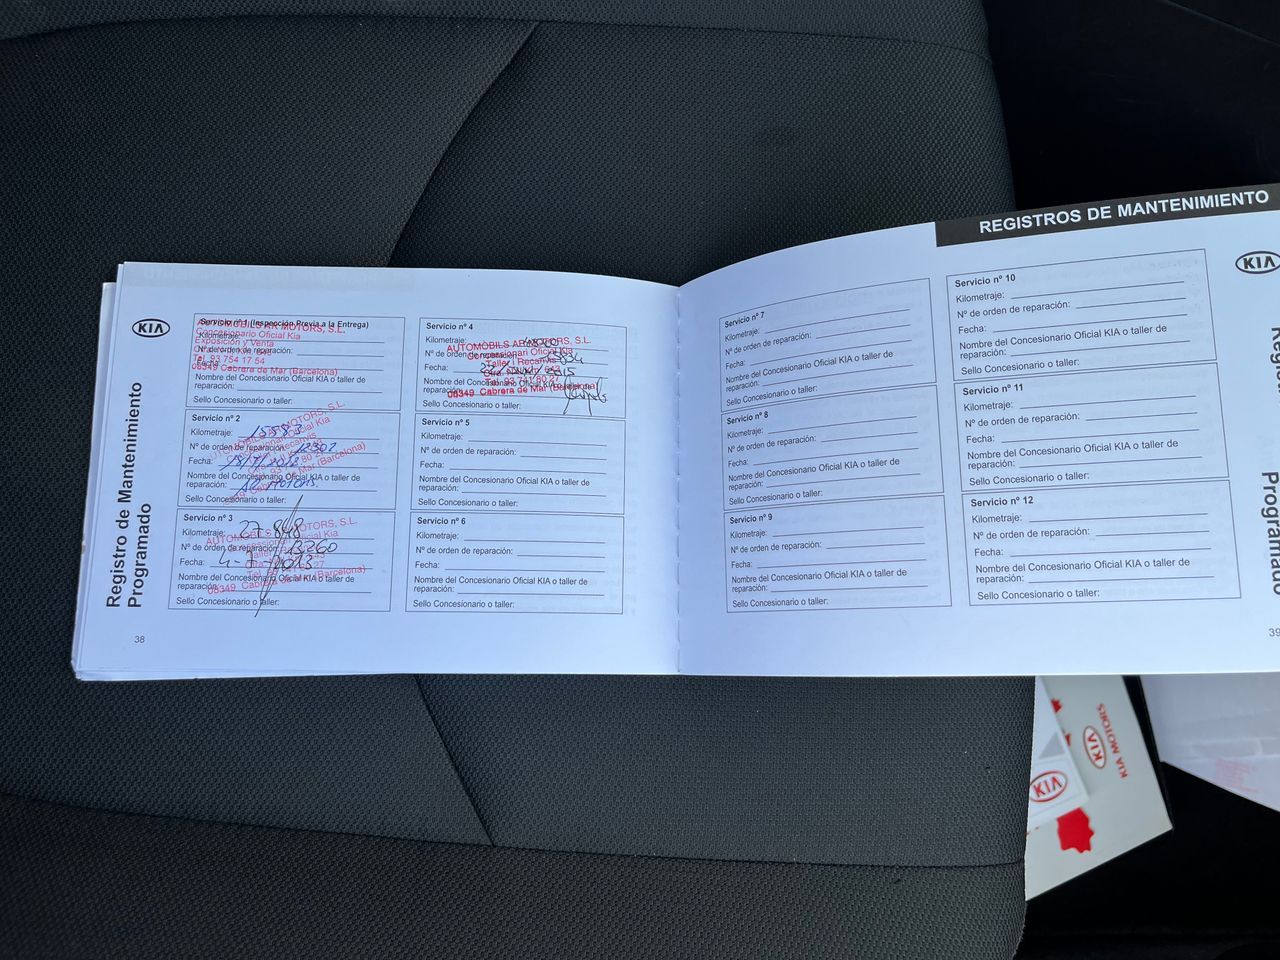 REGISTROS DE MANTENIMIENTO
KIA
Registro de Mantenimiento
Programado
Servicio nº 1 (Inspección Previa a la Entrega)
Kilometraje:
Nº de orden de reparación:
Fecha:
Nombre del Concesionario Oficial KIA o taller de
reparación:
Sello Concesionario o taller:
AUTOMOBILS AR MOTORS, S.L.
Concesionario Oficial Kia
Exposición y Venta
Tel. 93 754 17 54
08349 Cabrera de Mar (Barcelona)
Servicio nº 2
Kilometraje:
Nº de orden de reparación: 12302
Fecha:
Nombre del Concesionario Oficial KIA o taller de
reparación: AR MOTORS.
Sello Concesionario o taller:
Servicio nº 3
Kilometraje: 27.848
Nº de orden de reparación: 13260
Fecha: 4-7-2013
Nombre del Concesionario Oficial KIA o taller de
reparación:
Sello Concesionario o taller:
AUTOMOBILS AR MOTORS, S.L.
08349 Cabrera de Mar (Barcelona)
Servicio nº 4
Kilometraje:
Nº de orden de reparación:
Fecha:
Nombre del Concesionario Oficial KIA o taller de
reparación:
Sello Concesionario o taller:
AUTOMOBILS AR MOTORS, S.L.
Concessionari Oficial Kia
Taller i Recanvis
08349 Cabrera de Mar (Barcelona)
Servicio nº 5
Kilometraje:
Nº de orden de reparación:
Fecha:
Nombre del Concesionario Oficial KIA o taller de
reparación:
Sello Concesionario o taller:
Servicio nº 6
Kilometraje:
Nº de orden de reparación:
Fecha:
Nombre del Concesionario Oficial KIA o taller de
reparación:
Sello Concesionario o taller:
38
Servicio nº 7
Kilometraje:
Nº de orden de reparación:
Fecha:
Nombre del Concesionario Oficial KIA o taller de
reparación:
Sello Concesionario o taller:
Servicio nº 8
Kilometraje:
Nº de orden de reparación:
Fecha:
Nombre del Concesionario Oficial KIA o taller de
reparación:
Sello Concesionario o taller:
Servicio nº 9
Kilometraje:
Nº de orden de reparación:
Fecha:
Nombre del Concesionario Oficial KIA o taller de
reparación:
Sello Concesionario o taller:
Servicio nº 10
Kilometraje:
Nº de orden de reparación:
Fecha:
Nombre del Concesionario Oficial KIA o taller de
reparación:
Sello Concesionario o taller:
Servicio nº 11
Kilometraje:
Nº de orden de reparación:
Fecha:
Nombre del Concesionario Oficial KIA o taller de
reparación:
Sello Concesionario o taller:
Servicio nº 12
Kilometraje:
Nº de orden de reparación:
Fecha:
Nombre del Concesionario Oficial KIA o taller de
reparación:
Sello Concesionario o taller:
KIA
Programado
39
KIA
KIA MOTORS
KIA